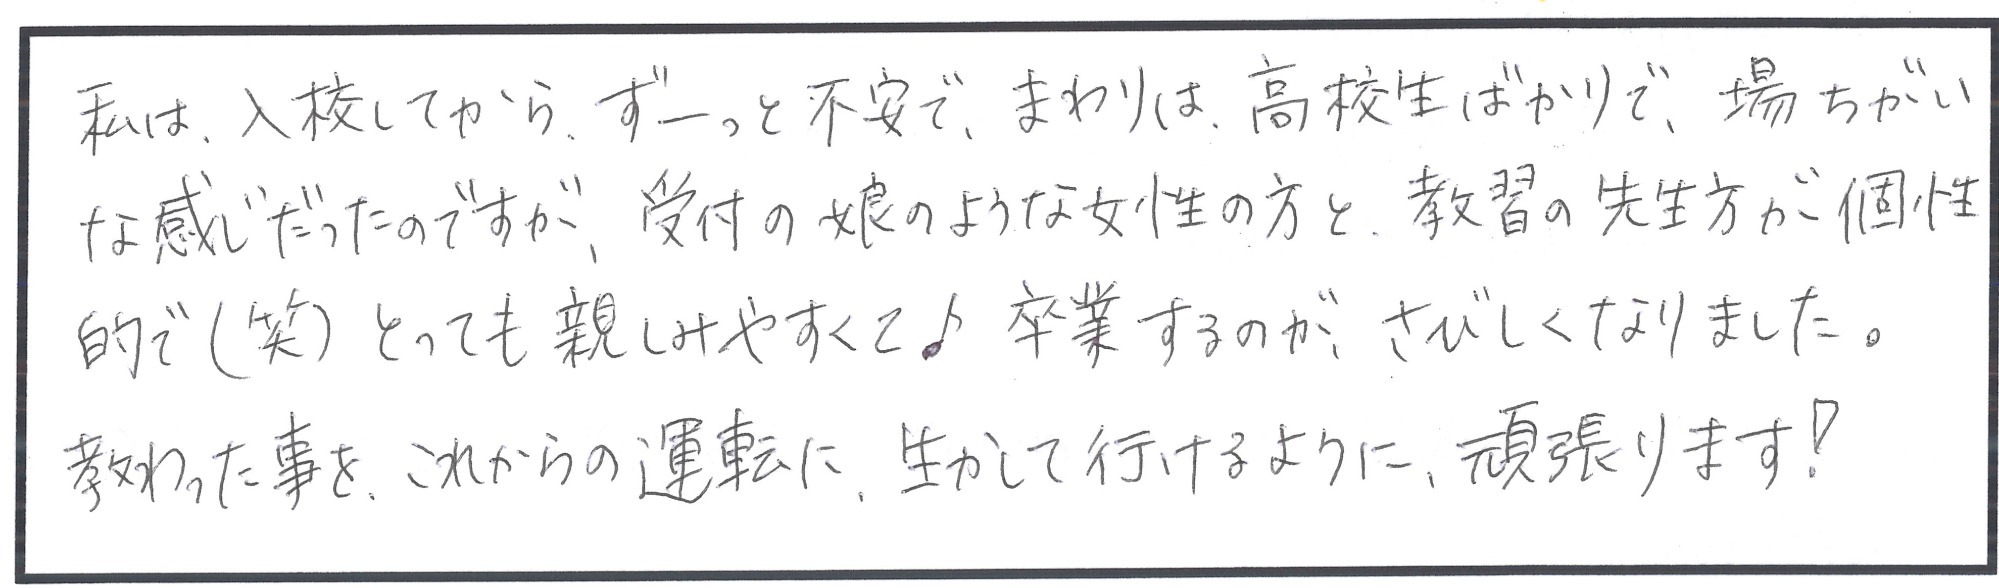 私は、入校してから、ずーっと不安で、まわりは、高校生ばかりで、場ちがい
な感じだったのですが、受付の娘のような女性の方と、教習の先生方が個性
的で(笑)とっても親しみやすくて♪卒業するのが、さびしくなりました。
教わった事を、これからの運転に、生かして行けるように、頑張ります!